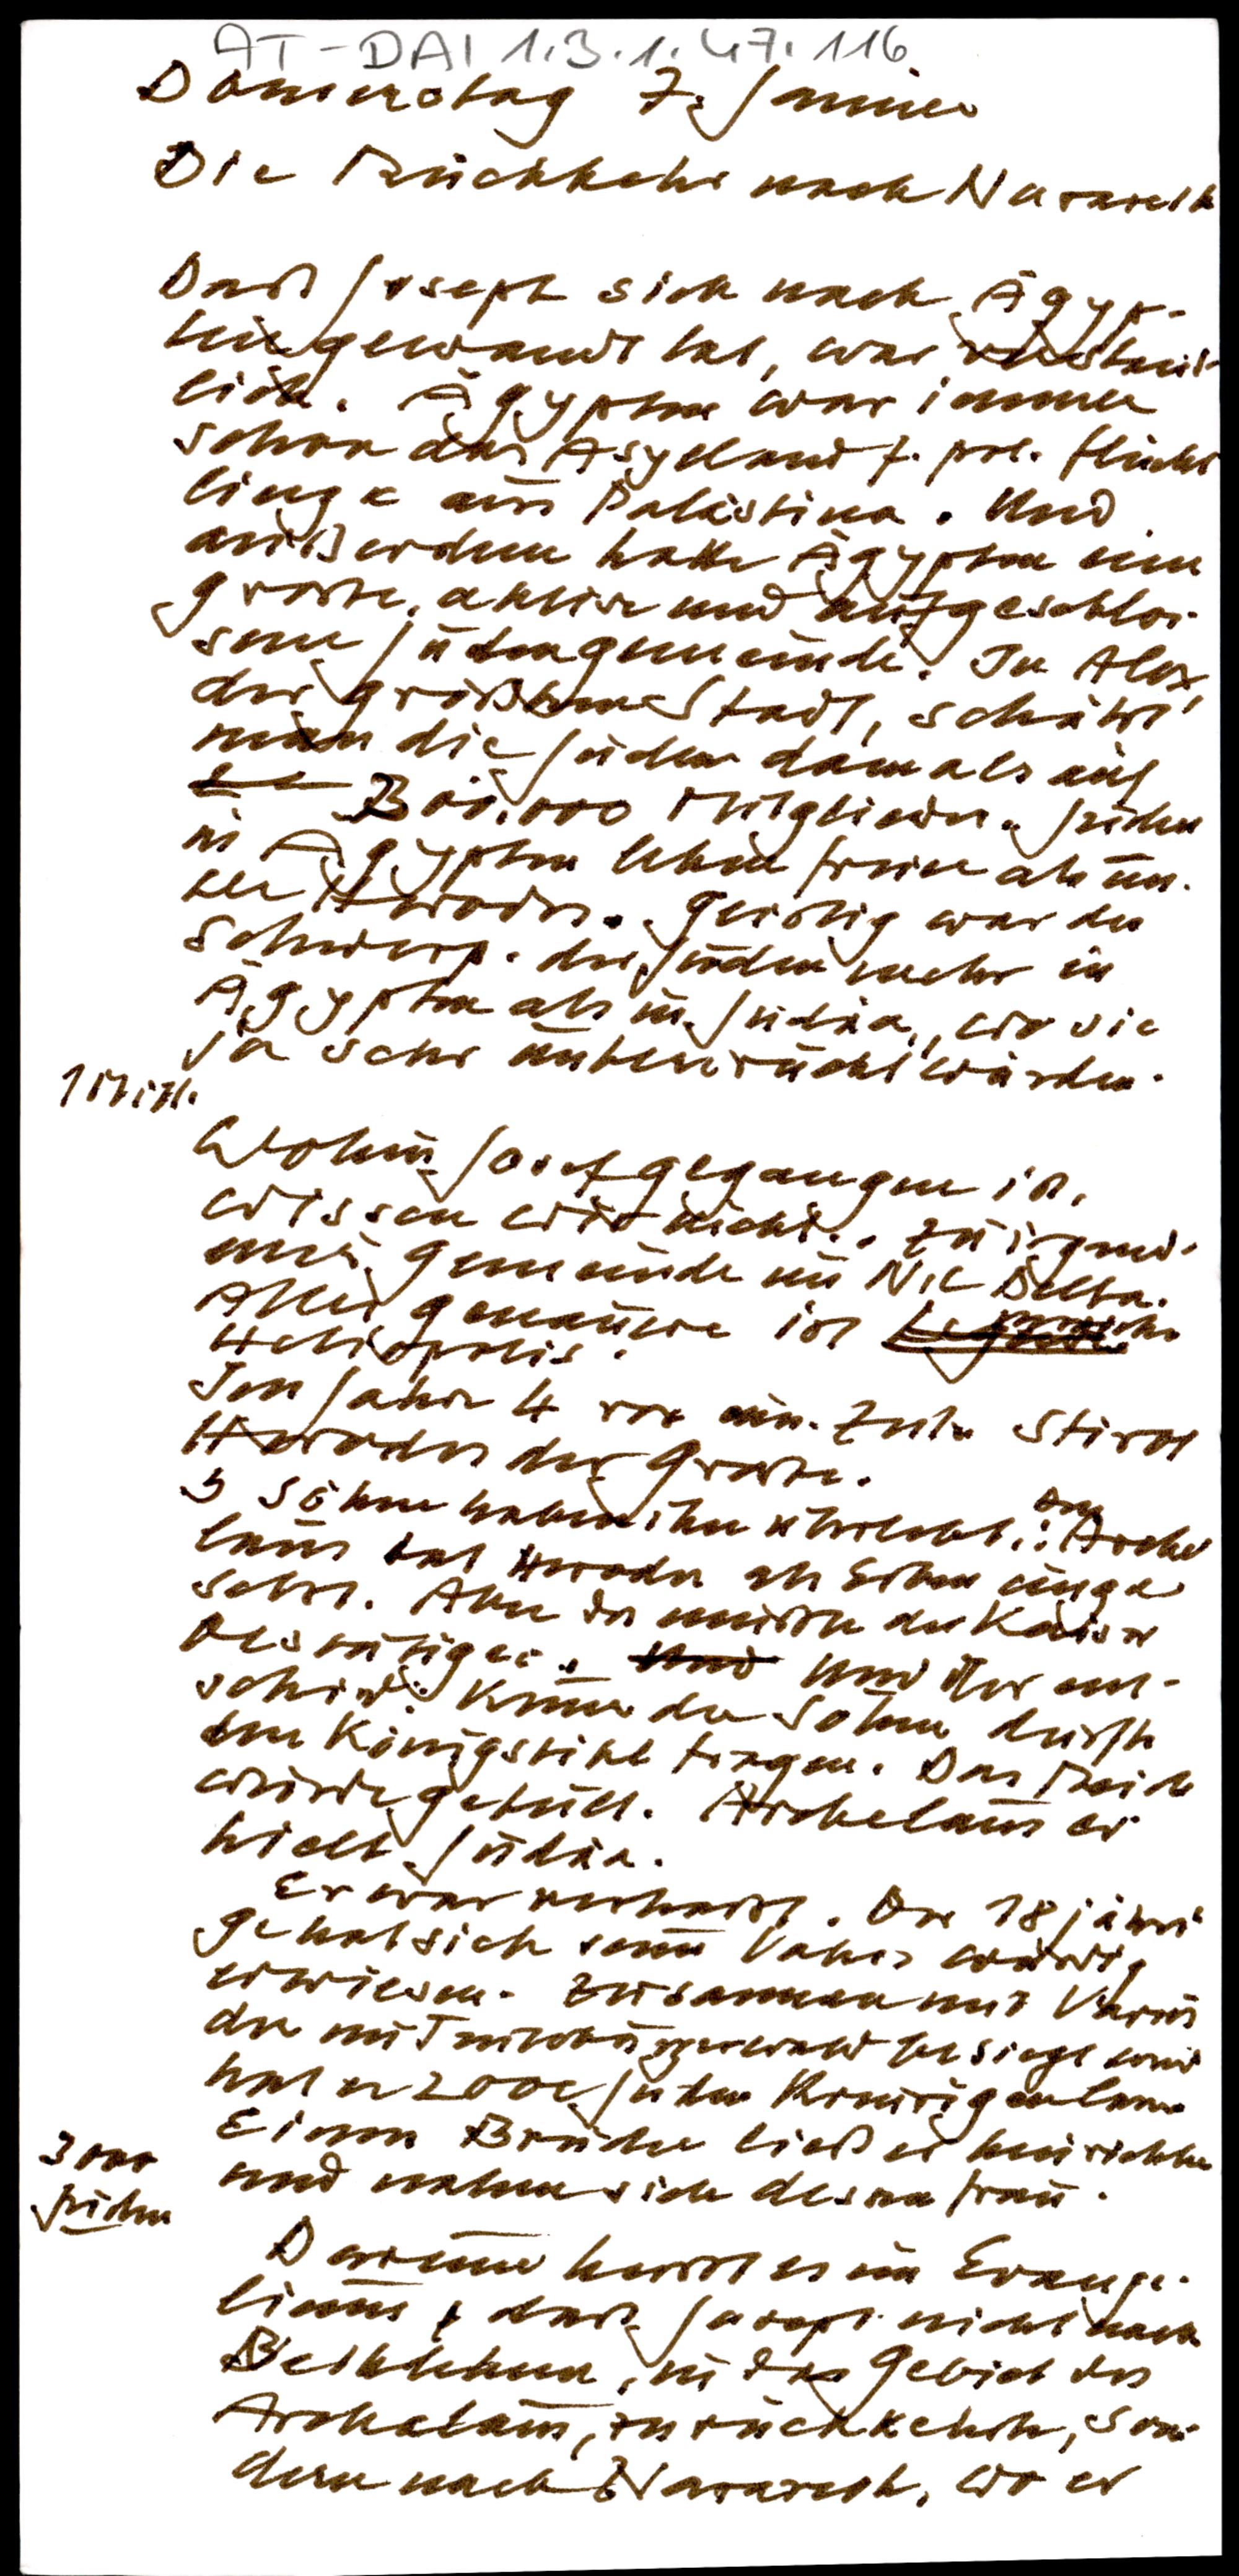 AT-DAI 1.3.1.47.116
Donnerstag 7. Jänner
Die Rückkehr nach Nazareth
Daß Joseph sich nach Ägyp-
ten gewandt hat, war verständ-
lich. Ägypten war immer
schon das Asylland f. pol. Flücht
linge aus Palästina. Und
außerdem hatte Ägypten eine
große, aktive und aufgeschlos-
sene Judengemeinde. In Alex,
der größten Stadt, schätzt
man die Juden damals auf
300.000 Mitglieder. Juden
in Ägypten lebten freier als un-
ter Herodes. Geistig war der
Schwerp. der Juden mehr in
Ägypten als in Judäa, wo sie
ja sehr unterdrückt wurden.
1 Mill.
Wohin Josef gegangen ist,
wissen wir nicht. Zu irgend-
einer Gemeinde im Nil Delta.
Aller genauere ist
Heliopolis.
Im Jahr 4 vor uns. Zeitr. stirbt
Herodes der Große.
5 Söhne haben ihn überlebt: Den Arche
laus hat Herodes als Erben einge
setzt. Aber das mußte der Kaiser
bestätigen. Und Und der ent-
schied: Keiner der Söhne durfte
den Königstitel tragen. Das Reich
wurde geteilt. Archelaus er
hielt Judäa.
Er war verhaßt. Der 18 jähri
ge hat sich seines Vaters würdig
erwiesen. Zusammen mit Varus
der im Teutoburgerwald besiegt wird
hat er 2000 Juden kreuzigen lassen
Einen Bruder ließ er hinrichten
und nahm sich dessen Frau.
3000
Juden
Darum heißt es im Evange-
lium, daß Joseph nicht nach
Bethlehem, in das Gebiet des
Archelaus, zurückkehrte, son-
dern nach Nazareth, wo er